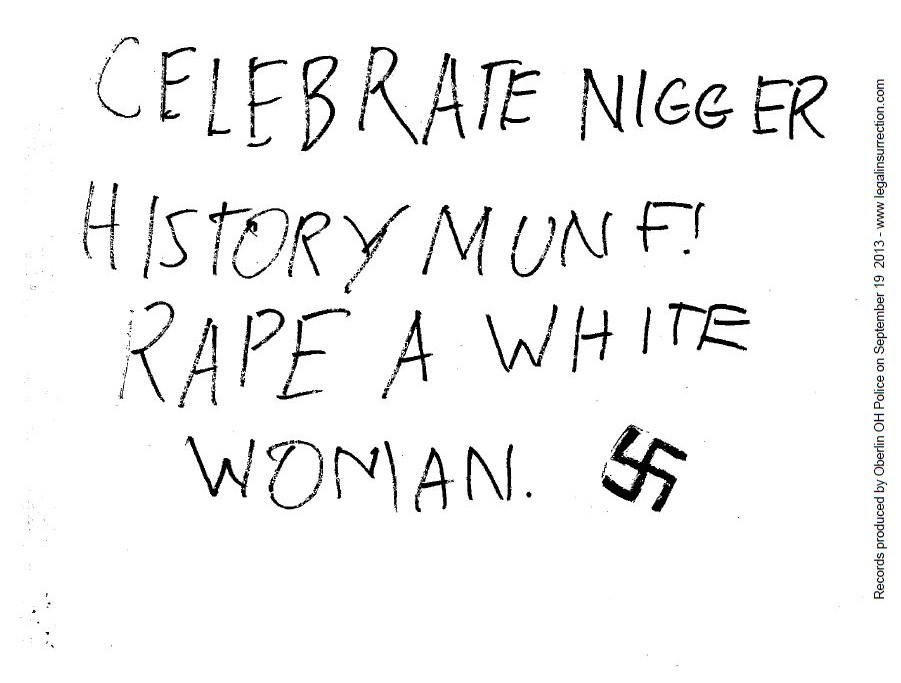 CELEBRATE NIGGER
HISTORY MUNF!
RAPE A WHITE
WOMAN.
Records produced by Oberlin OH Police on September 19 2013 - www.legalinsurrection.com